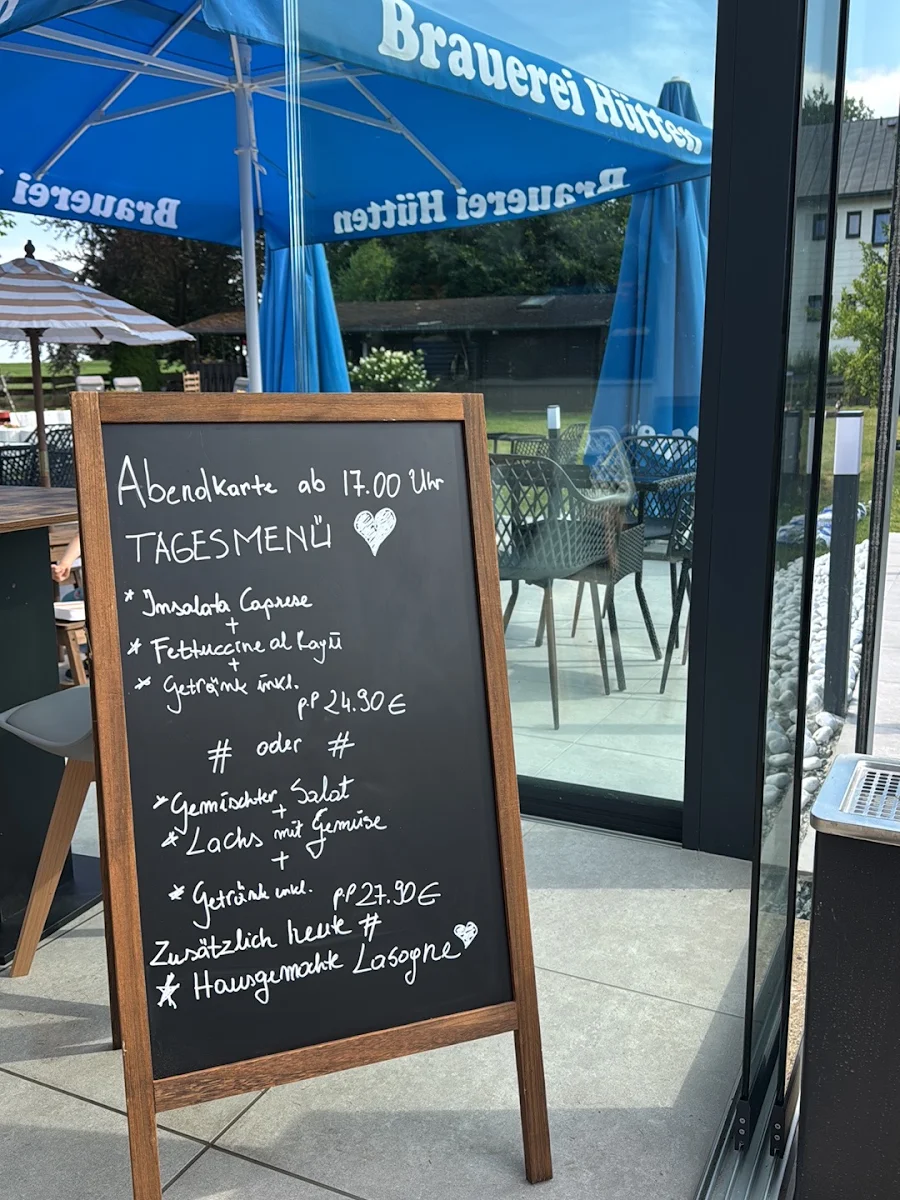 Brauerei Hütten
Brauerei
Brauerei Hütten
Abendkarte ab 17.00 Uhr
TAGESMENÜ
* Insalata Caprese
+
* Fettuccine al Ragū
+
* Getränk inkl.
p.P 24.90 €
# oder #
* Gemischter Salat
+
* Lachs mit Gemüse
+
* Getränk inkl. p.P 27.90 €
Zusätzlich heute #
* Hausgemachte Lasagne